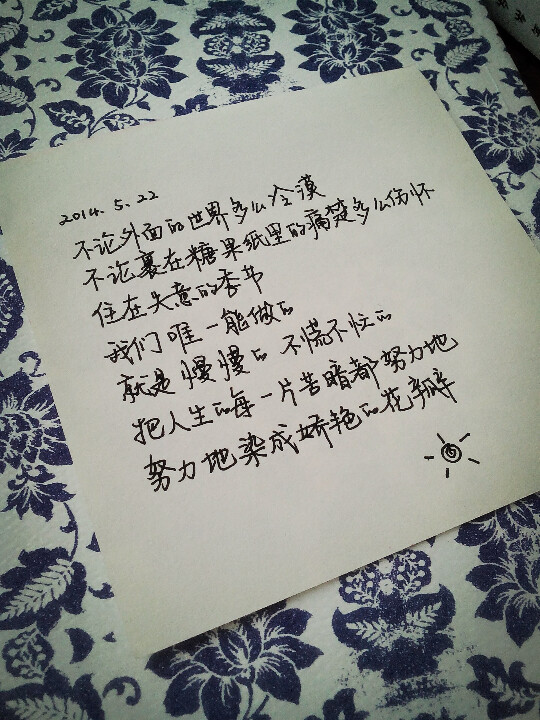 2014. 5. 22
不论外面的世界多么冷漠
不论裹在糖果纸里的痛楚多么伤怀
住在失意的季节
我们唯一能做的
就是慢慢的 不慌不忙的
把人生的每一片苦暗都努力地
努力地染成娇艳的花瓣